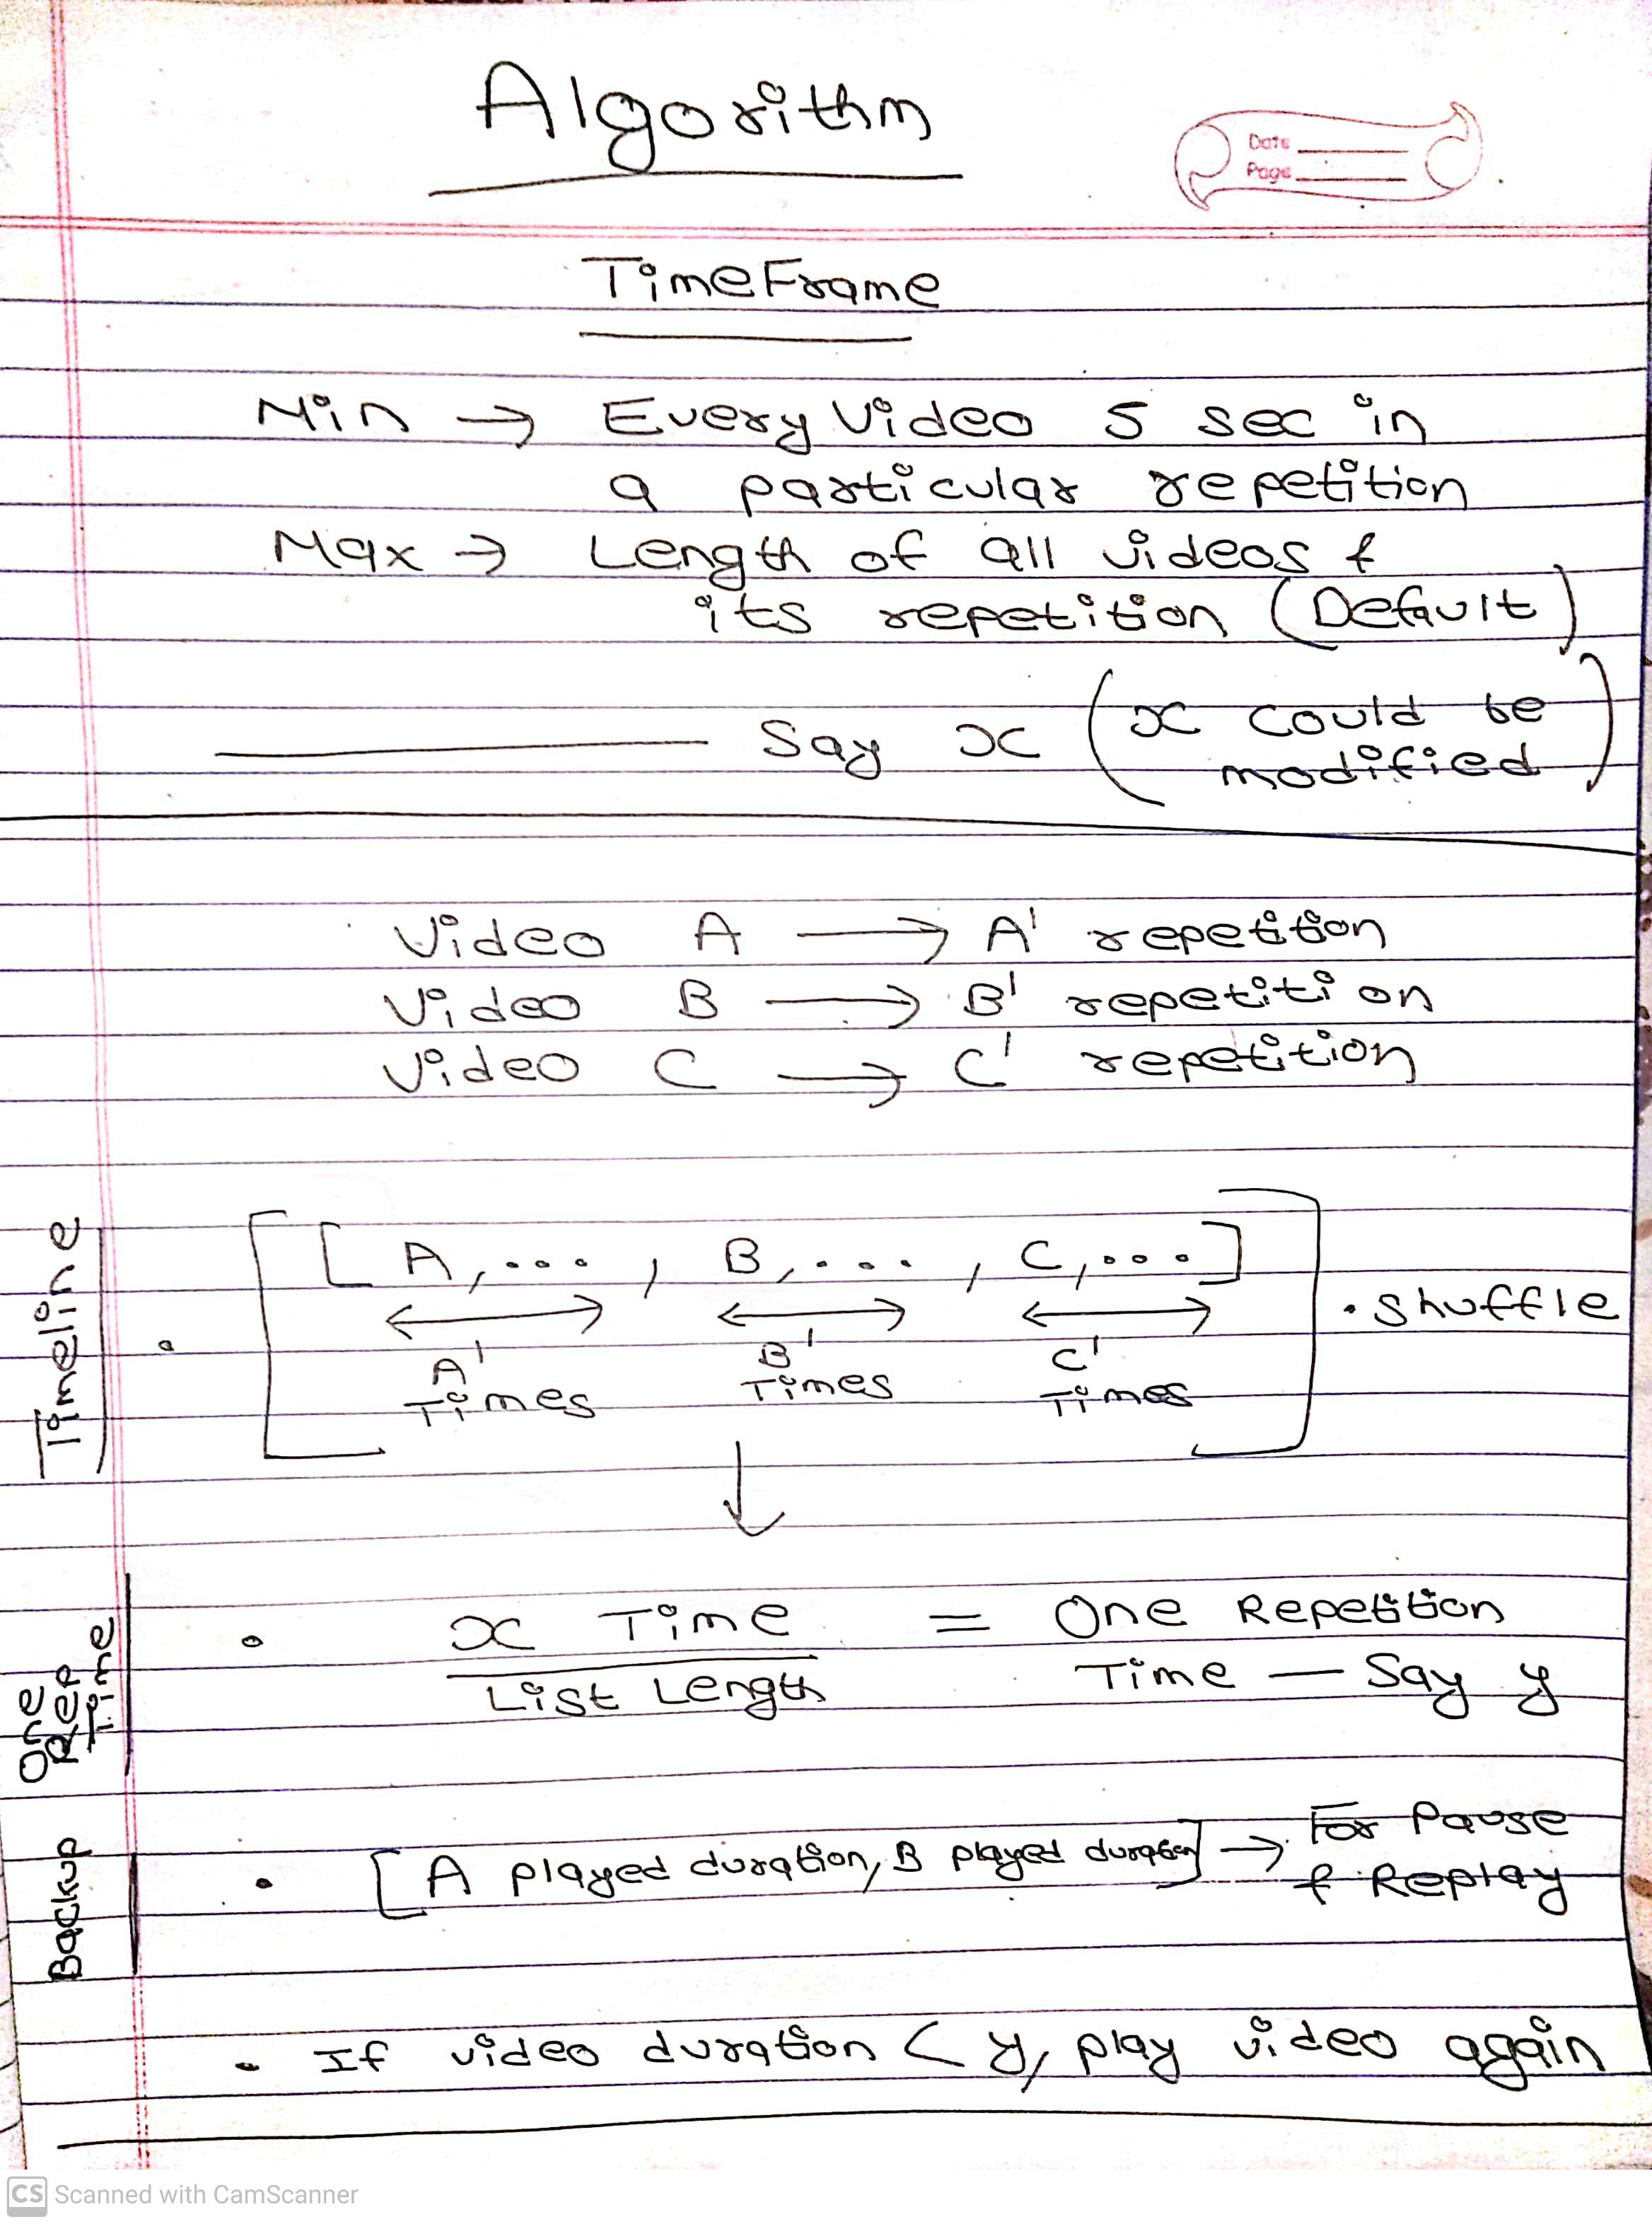 Algorithm
Date
Page
TimeFrame
Min → Every Video 5 sec in
a particular repetition
Max → Length of all videos &
its repetition (Default)
Say x (x could be
modified)
Video A → A' repetition
Video B → B' repetition
Video C → C' repetition
Timeline
• [[A, ... , B, ... , C, ...]] . shuffle
A' Times B' Times C' Times
↓
One Rep Time
• x Time / List Length = One Repetition
Time — Say y
Backup
• [A played duration, B played duration] → For Pause
& Replay
• If video duration < y, play video again
CS Scanned with CamScanner